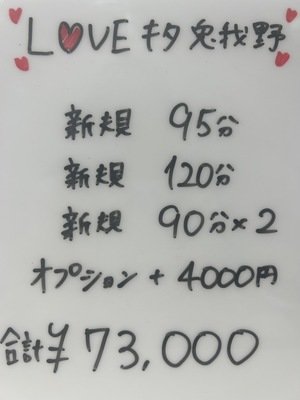 LOVE キタ兎我野
新規 95分
新規 120分
新規 90分×2
オプション + 4000円
合計¥73,000